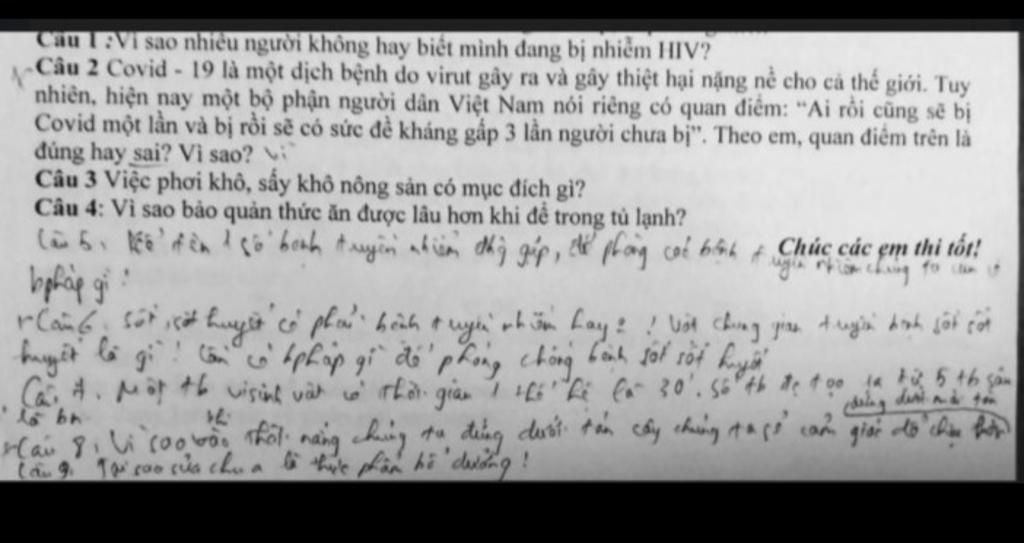 Câu 1 :Vì sao nhiều người không hay biết mình đang bị nhiễm HIV?
Câu 2 Covid - 19 là một dịch bệnh do virut gây ra và gây thiệt hại nặng nề cho cả thế giới. Tuy
nhiên, hiện nay một bộ phận người dân Việt Nam nói riêng có quan điểm: “Ai rồi cũng sẽ bị
Covid một lần và bị rồi sẽ có sức đề kháng gấp 3 lần người chưa bị”. Theo em, quan điểm trên là
đúng hay sai? Vì sao? Vì
Câu 3 Việc phơi khô, sấy khô nông sản có mục đích gì?
Câu 4: Vì sao bảo quản thức ăn được lâu hơn khi để trong tủ lạnh?
Chúc các em thi tốt!
Câu 5. Kể tên 1 số bệnh truyền nhiễm thg gặp, để phòng các bệnh truyền nhiễm chúng ta cần có
bpháp gì?
Câu 6. Sốt, sốt huyết có phải bệnh truyền nhiễm hay? Vật trung gian truyền bệnh sốt sốt
huyết là gì? Cần có bpháp gì để phòng chống bệnh sốt sốt huyết
Câu 7. Một tb vi sinh vật có thời gian 1 thế hệ là 30'. Số tb đc tạo ra từ 5 tb sau
là bn
đứng dưới mái tôn
Câu 8. Vì sao vào trời nắng chúng ta đứng dưới tán cây chúng ta có cảm giác dễ chịu hơn
Câu 9. Tại sao sữa chua là thực phẩm bổ dưỡng?